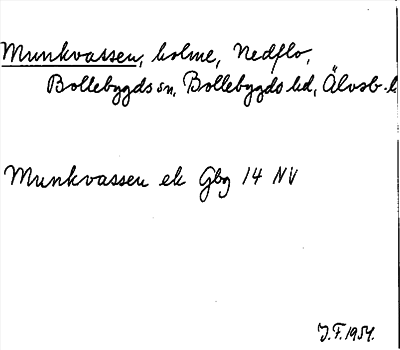 Munkvassen, holme, Nedflo,
Bollebygds sn, Bollebygds hd, Älvsb. l
Munkvassen ek Gbg 14 NV
J.F. 1954.